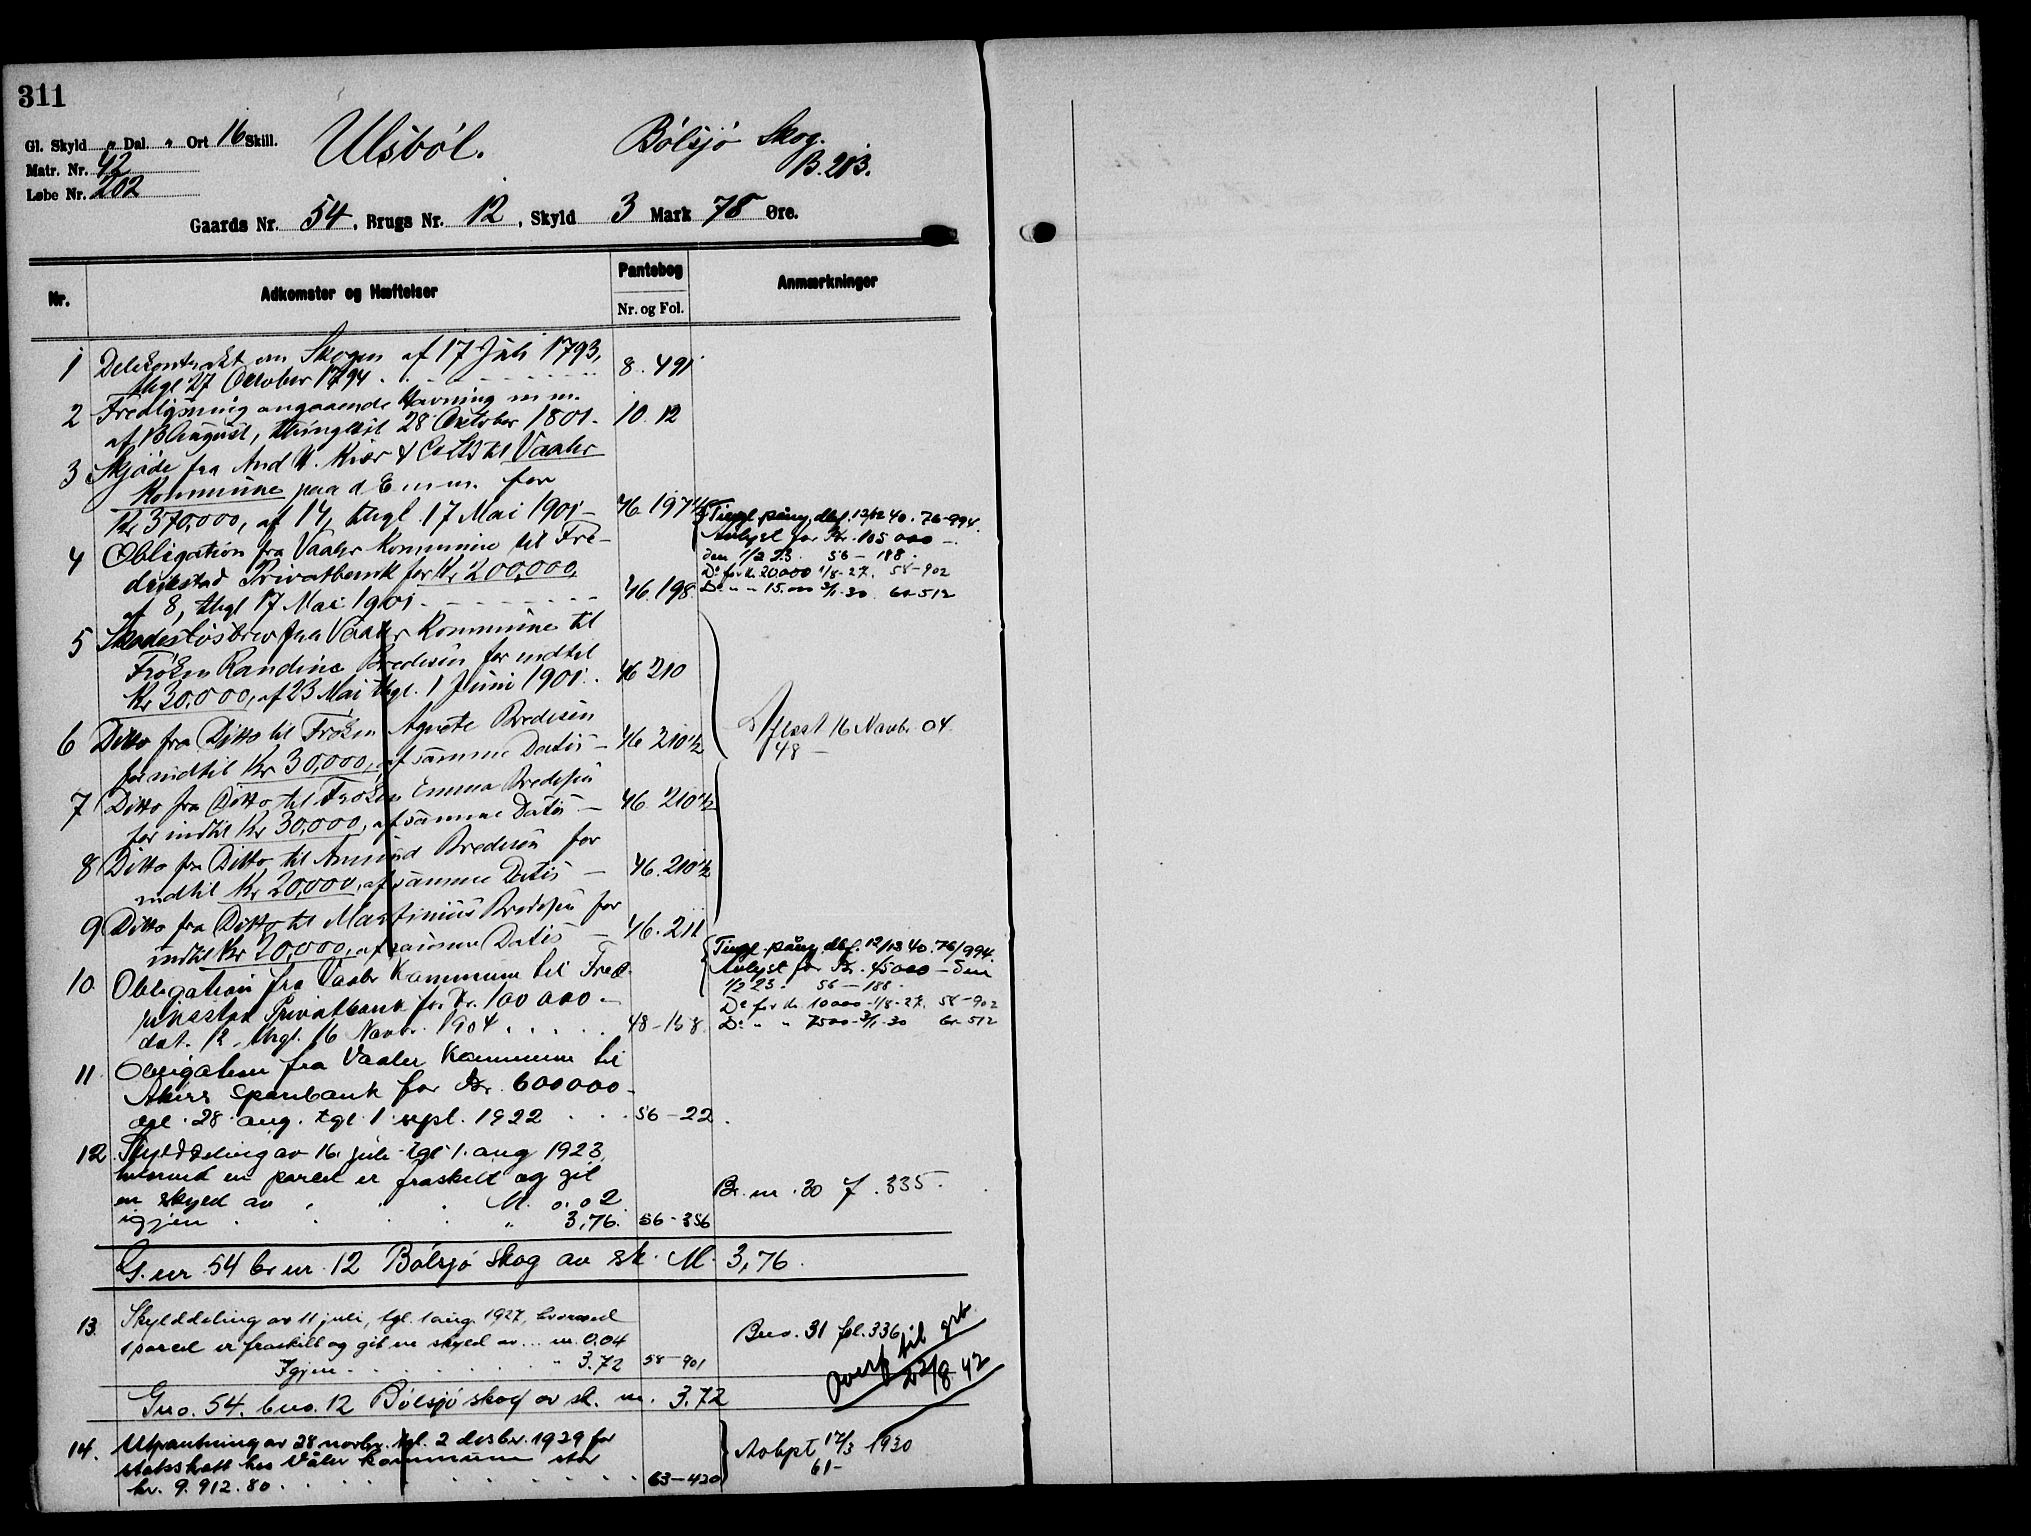 311
Gl. Skyld " Dal. " Ort 16 Skill.
Matr. Nr. 42
Løbe Nr. 202
Ulsbøl. Bølsjø Skog.
B. 213.
Gaards Nr. 54, Brugs Nr. 12, Skyld 3 Mark 78 Øre.
Nr. Adkomster og Hæftelser Pantebog Nr. og Fol. Anmærkninger
1 Delekontrakt om Skogen af 17 Juli 1793,
thgl 27 October 1794. 8. 491
2 Fredlysning angaaende Havning m m.
af 13 August, thinglæst 28 Oktober 1801. 10. 12
3 Skjøde fra And H. Kiær & Co til Vaaler
Kommune paa d E m. m. for
Kr 370,000, af 14, thgl. 17 Mai 1901 - 46. 197 1/2
4 Obligation fra Vaaler Kommune til Fre-
drikstad Privatbank for Kr 200,000,
af 8, thgl 17 Mai 1901. 46. 198
Tingl. påny, dbf. 12/12 40. 76-994.
Avlyst for Kr. 105 000 -.
den 1/2 23. 56 - 188.
Do for kr. 20.000 1/8-27. 58-902
Do " " 15.000 3/1-30 61-512
5 Skadesløsbrev fra Vaaler Kommune til
Frøken Randine Bredesen for indtil
Kr 30,000, af 23 Mai thgl. 1 Juni 1901. 46 210
6 Ditto fra Ditto til Frøken Agnete Bredesen
for indtil Kr 30,000, af samme Datis - 46 210 1/2
Aflæst 16 Novbr. 04.
48 -
7 Ditto fra Ditto til Frøken Emma Bredesen
for indtil Kr 30,000, af samme Datis - 46 210 1/2
8 Ditto fra Ditto til Amund Bredesen for
indtil Kr 20,000, af samme Datis - 46. 210 1/2
9 Ditto fra Ditto til Martinius Bredesen for
indtil Kr 20,000, af samme Datis - 46. 211
10. Obligation fra Vaaler Kommune til Fred-
rikstad Privatbank for Kr. 100 000 -
dat. 12, thgl. 16 Novbr. 1904. 48-158
Tingl. påny, dbf. 12/12 40. 76/994.
Avlyst for Kr. 45000 - den
1/2 23. 56 - 188.
Do for kr 10000 - 1/8-27. 58-902
Do " " 7500 - 3/1-30 61-512
11. Obligation fra Vaaler Kommune til
Akers Sparebank for Kr. 600000 -
dat. 28 aug. tgl. 1 sept. 1922 . . . 56-22.
12. Skylddeling av 16 juli tgl 1. aug 1923,
hvorved en parcel er fraskilt og git
en skyld av . . . M. 0.02
igjen . . . " 3,76. 56-356
Br. nr. 30 f. 335.
G. nr. 54 br nr. 12 Bølsjø skog av sk. M. 3,76.
13. Skylddeling av 11 juli, tgl. 1 aug. 1927, hvorved
1 parcel er fraskilt og git en skyld av ... m. 0.04
Igjen . . . " 3.72 58-901
Bno. 31 fol. 336.
Overf til grb
22/8 42
Gno. 54. bno. 12 Bølsjø skog av sk. m. 3.72
14. Utpantning av 28 novbr. tgl. 2 desbr. 1929 for
statsskatt hos Våler kommune stor
kr. 9.912.80 . . . 63-420
Avlyst 17/3 1930
61-